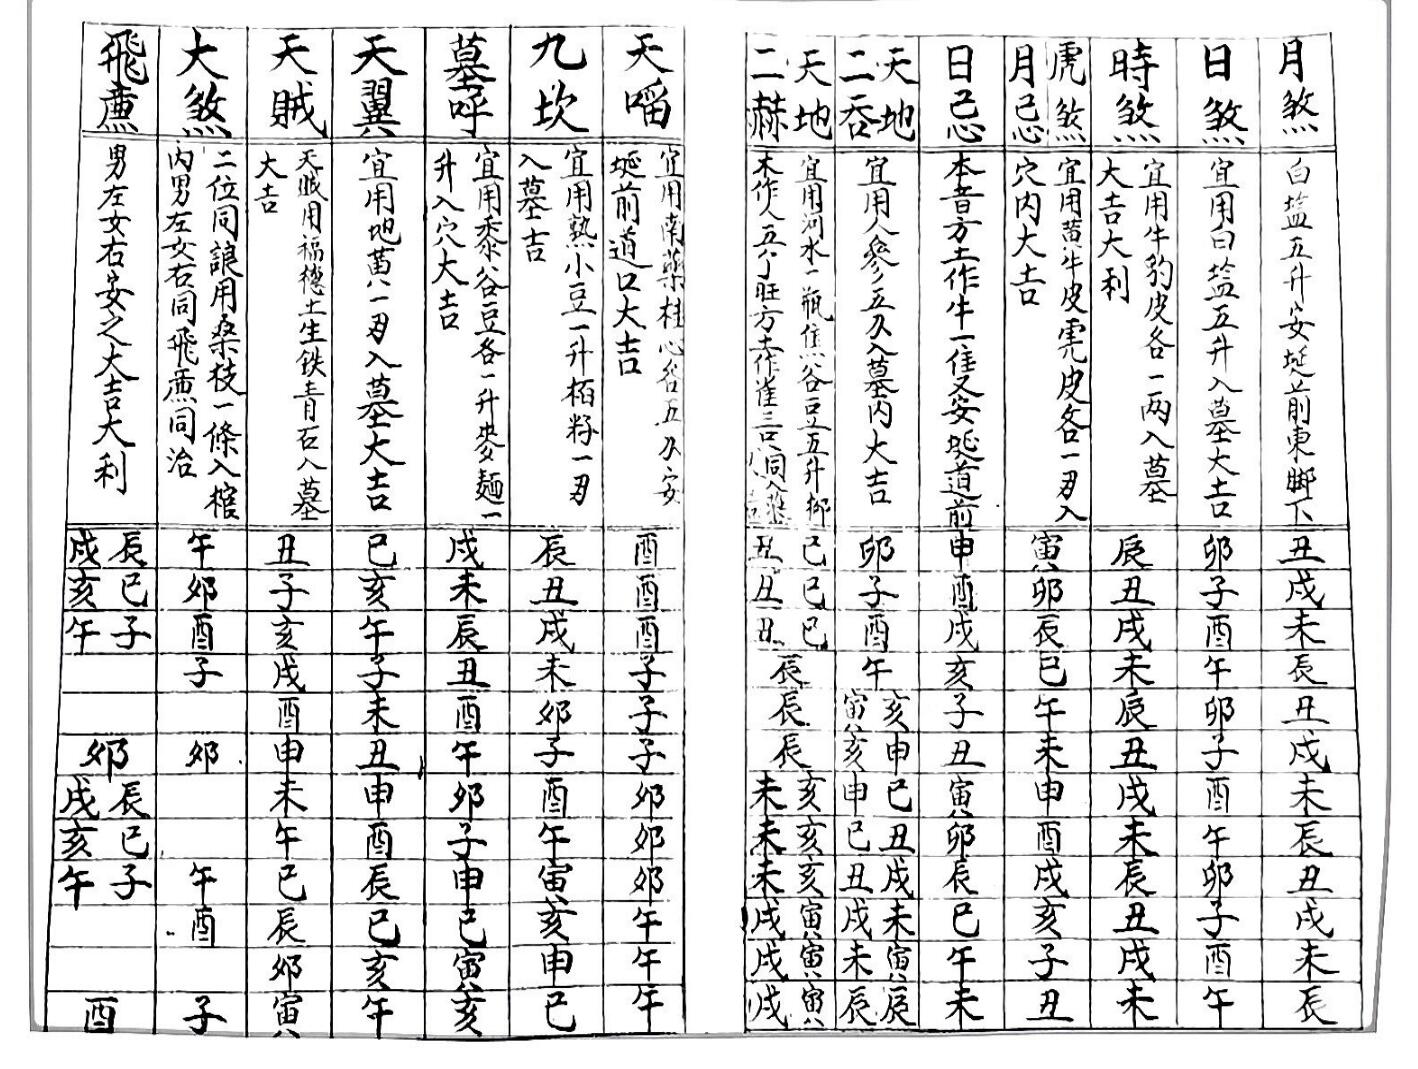 月煞
白盐五升安埏前東脚下
丑
戌
未
辰
丑
戌
未
辰
丑
戌
未
辰
日煞
宜用白盐五升入墓大吉
卯
子
酉
午
卯
子
酉
午
卯
子
酉
午
時煞
宜用牛豹皮各一两入墓
大吉大利
辰
丑
戌
未
辰
丑
戌
未
辰
丑
戌
未
虎煞
月忌
宜用黄牛皮虎皮各一刄入
穴内大吉
寅
卯
辰
巳
午
未
申
酉
戌
亥
子
丑
日忌
本音方土作牛一隹又安埏道前
申
酉
戌
亥
子
丑
寅
卯
辰
巳
午
未
天地
二吞
宜用人參五刄入墓内大吉
卯
子
酉
午
亥寅
申亥
巳申
丑巳
戌丑
未戌
寅未
辰辰
天地
二赫
宜用河水一瓶焦谷豆五升柳
木作人五个旺方土作隹三只同入
巳丑
巳丑
巳丑
辰
辰
辰
亥未
亥未
亥未
寅戌
寅戌
寅戌
天啗
宜用南藥桂心各五刄安
埏前道口大吉
酉
酉
酉
子
子
子
卯
卯
卯
午
午
午
九坎
宜用熟小豆一升栢籽一刄
入墓吉
辰
丑
戌
未
卯
子
酉
午
寅
亥
申
巳
墓呼
宜用黍谷豆各一升麥麺一
升入穴大吉
戌
未
辰
丑
酉
午
卯
子
申
巳
寅
亥
天翼
宜用地黄一刄入墓大吉
巳
亥
午
子
未
丑
申
酉
辰
巳
亥
午
天賊
天賊用福德土生鉄青石入墓
大吉
丑
子
亥
戌
酉
申
未
午
巳
辰
卯
寅
大煞
二位同詪用桑枝一條入棺
内男左女右同飛廉同治
午
卯
酉
子
卯
午
酉
子
飛廉
男左女右安之大吉大利
辰戌
巳亥
子午
卯
辰戌
巳亥
子午
酉